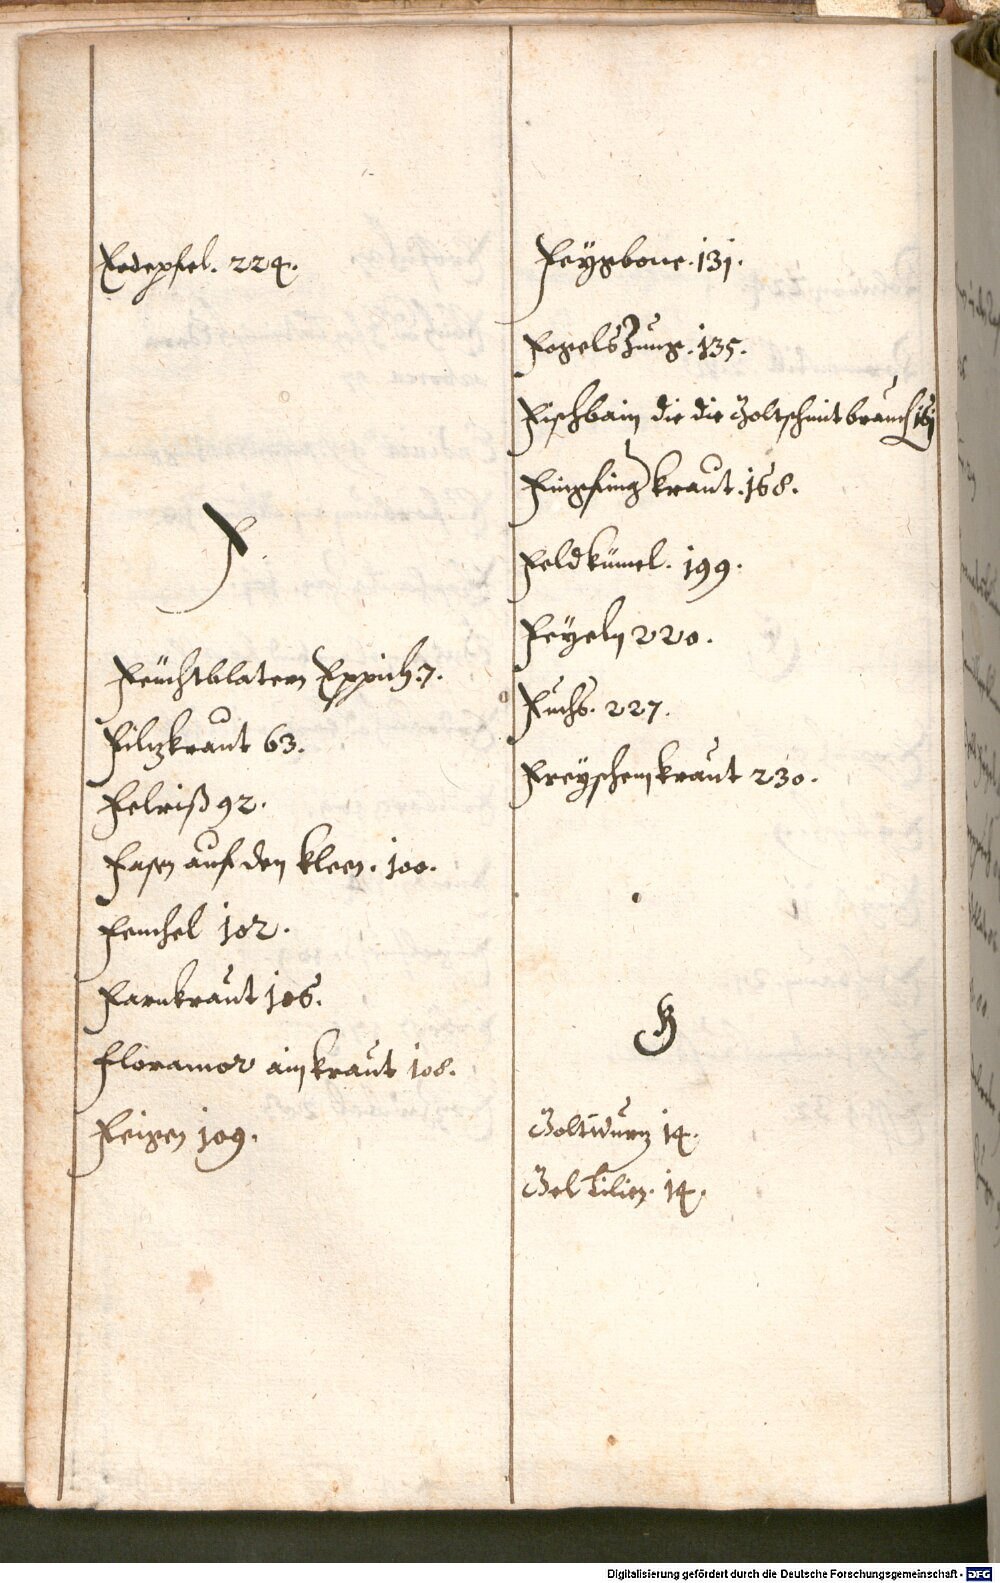 Erdepfel. 224.
F
Feüchtblatern Eppich. 7.
Filtzkraut 63.
Felriß 92.
Fasen auf den kleen. 100.
Fenchel 102.
Farnkraut 106.
Floramor ain kraut 108.
Feigen 109.
Feygbone. 131.
Fogels Zung. 135.
Fischbain die die Goltschmit brauch 161
Fingfing kraut. 168.
Feldkümel. 199.
Feyeln 220.
Fuchs. 227.
Freyschemkraut 230.
G
Goltwurtz 14.
Gel Lilien. 14.
Digitalisierung gefördert durch die Deutsche Forschungsgemeinschaft - DFG